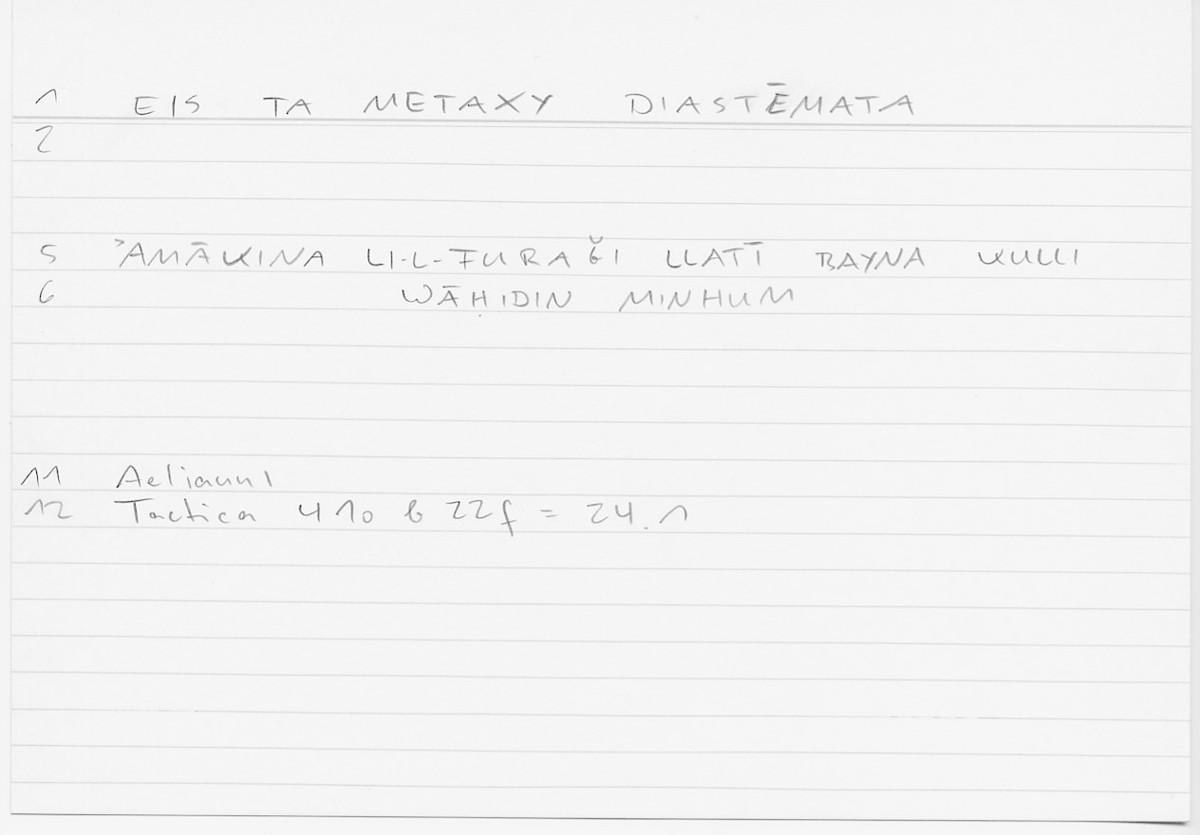 1 EIS TA METAXY DIASTĒMATA
2
5 ʾAMĀKINA LI-L-FURAǦI LLATĪ BAYNA KULLI
6 WĀḤIDIN MINHUM
11 Aelianus
12 Tactica 4 10 b 22f = 24.1